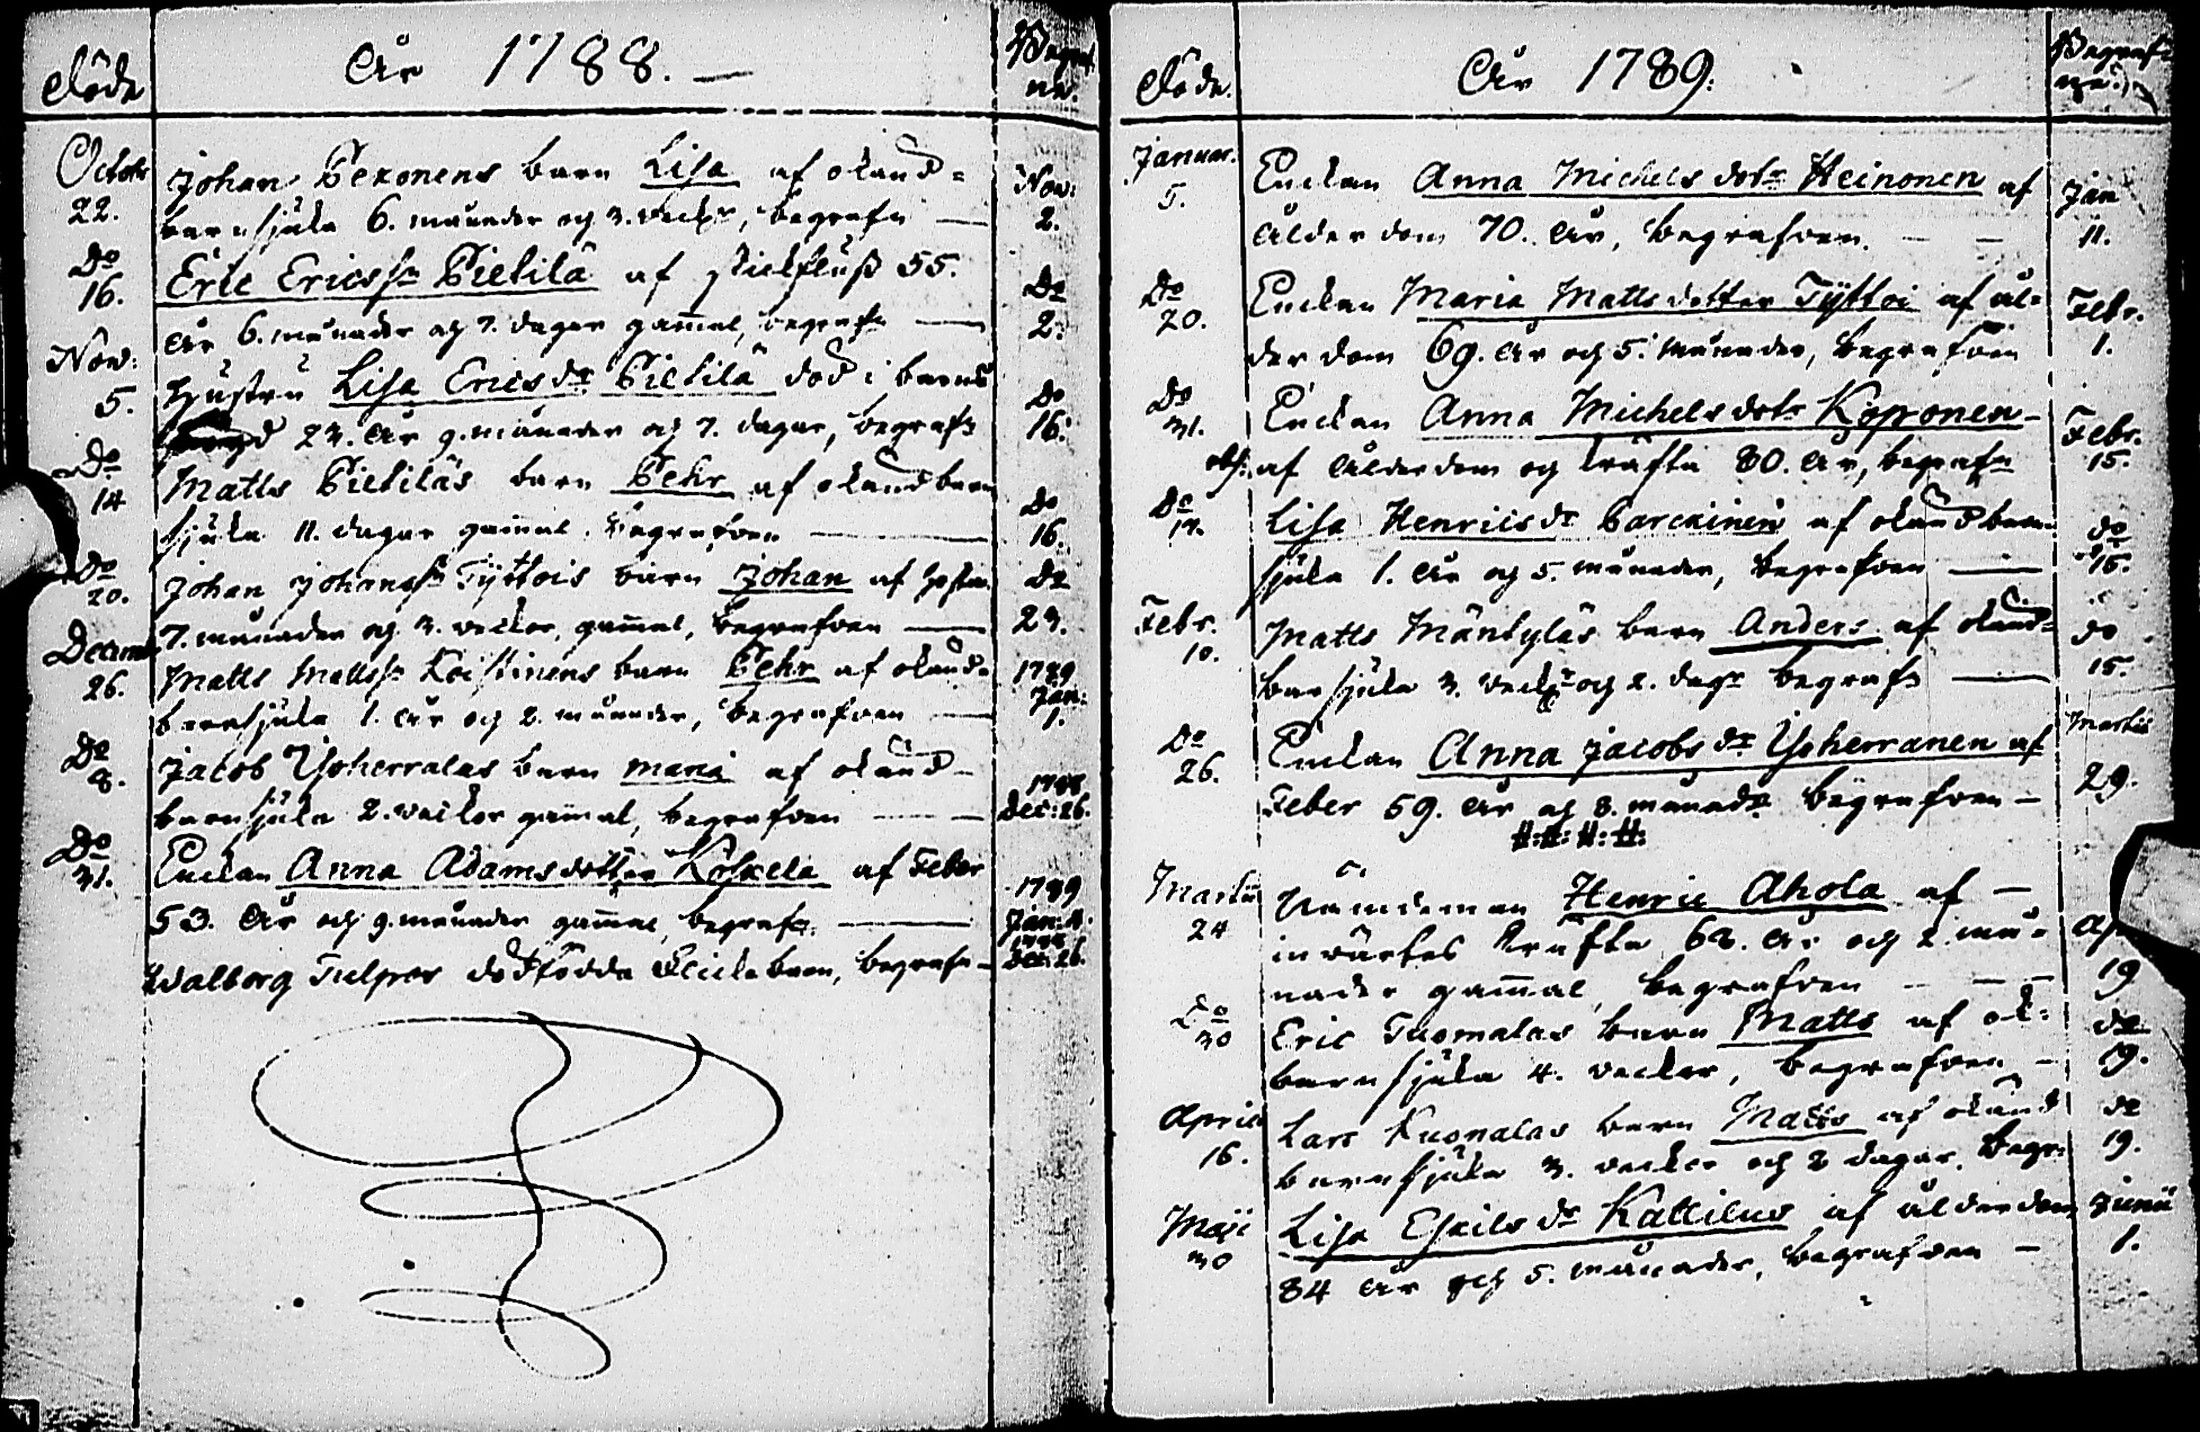 Döde
År 1788. —
Begraf
ne.
Octobr
22.
Johan Pekonens barn Lisa af okänd=
barnsjuka 6. månader och 3. veckr, begrafn —
Nov:
2.
Do
16.
Eric Ericss: Pietilä af stickfluss 55.
år 6. månader och 7. dagar gammal, begrafn —
Do
2.
Nov:
5.
Hustru Lisa Ericsdr Pietilä död i barns
23. år 9. månader och 7. dagar, begrafn
Do
16.
Do
14
Matts Pietiläs barn Pehr af okänd barn
sjuka 11. dagar gammal. Begrafven —
Do
16.
Do
20.
Johan Johanss: Tyttois barn Johan af hosta
7. månader och 3. veckor, gammal, begrafven —
Do
23.
Decemb
26.
Matts Mattss: Koistinens barn Pehr af okänd=
barnsjuka 1. år och 2. månader, begrafven —
1789
Jan:
1.
Do
8.
Jacob Ypherralas barn Maria af okänd=
barnsjuka 2. veckor gammal, begrafven —
1788
Dec: 26.
Do
31.
Enckan Anna Adamsdotter Koskela af Feber
53. år och 9. månader gammal, begrafn. —
1789
Jan: 4.
Walborg Tulpos dödfödda flickebarn, begrafn —
1788
Dec: 26.
Döde.
År 1789.
Begraf=
ne.
Januar.
5.
Enckan Anna Michelsdotr Heinonen af
ålderdom 70. år, begrafven. — —
Jan
11.
Do
20.
Enckan Maria Mattsdotter Tyttöi af ål=
derdom 69. år och 5. månader, begrafven
Febr.
1.
Do
31.
Enckan Anna Michelsdotr Koponen —
obs: af ålderdom och kräfta 80. år, begrafn
Febr.
15.
Do
17.
Lisa Henricsdr Parckinen af okänd barn
sjuka 1. år och 5. månader, begrafven —
do
15.
Febr.
10.
Matts Mäntyläs barn Anders af okänd=
barnsjuka 3. veckr och 2. dagr begrafn —
do
15.
Do
26.
Enckan Anna Jacobsdr Ypherranen af
Feber 59. år och 8. månadr begrafven —
#:#:#:#:
Martii
29.
Martii
24
Nämdeman Henric Ahola af —
invärtes kräfta 62. år och 2. må=
nader gammal, begrafven — — —
Ap
19
Do
30
Eric Tuomalas barn Matts af ok:
barnsjuka 4. veckor, begrafven —
do
19.
April
16.
Lars Kuonalas barn Matts af okänd
barnsjuka 3. veckor och 2 dagar. begr:
do
19.
Maji
30
Lisa Eskilsdr Kattilus af ålderdom
84 år och 5. månader, begrafven —
Junii
1.